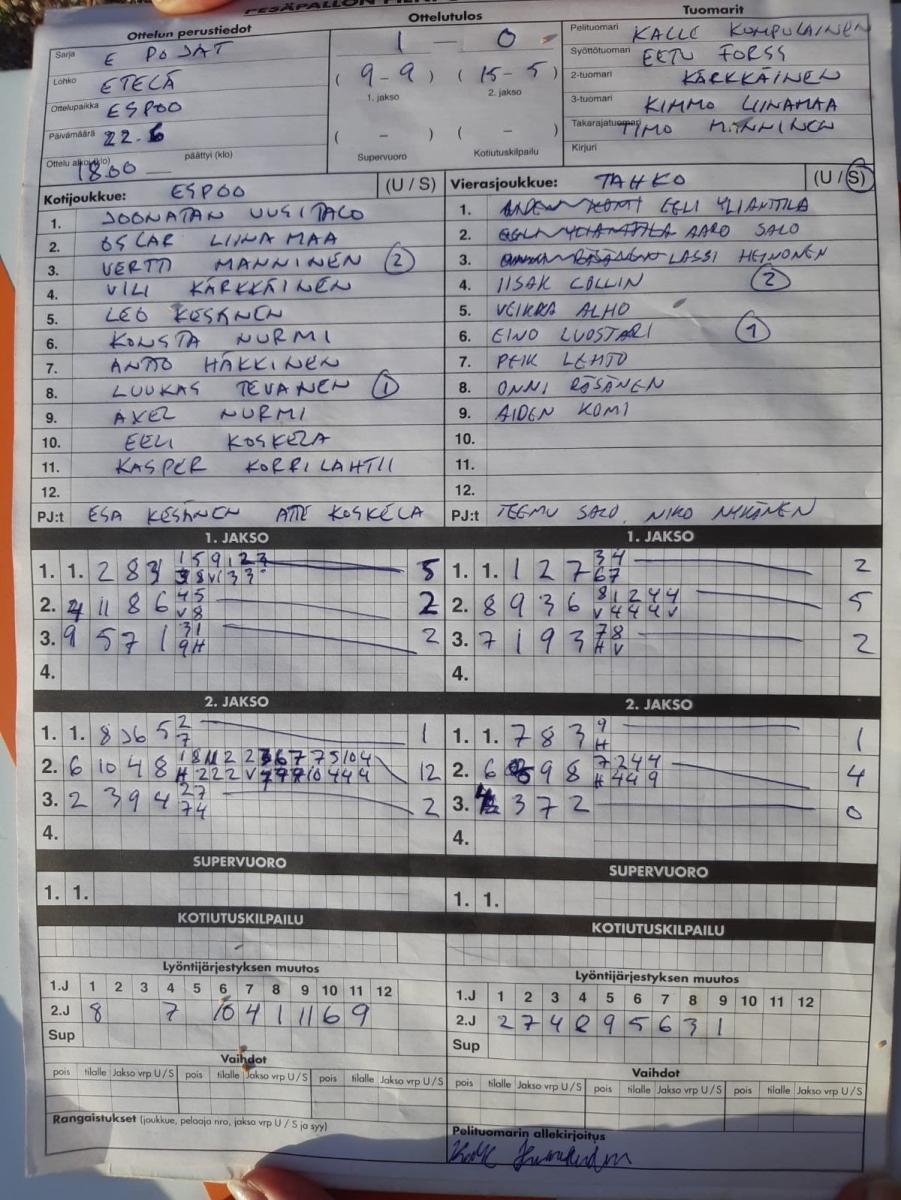 Ottelun perustiedot
Sarja E POJAT
Lohko ETELÄ
Ottelupaikka ESPOO
Päivämäärä 22.6
Ottelu alkoi (klo) 18.00 päättyi (klo)
Ottelutulos
1 – 0
( 9-9 ) ( 15-5 )
1. jakso 2. jakso
( – ) ( – )
Supervuoro Kotiutuskilpailu
Tuomarit
Pelituomari KALLE KUMPULAINEN
Syöttötuomari EETU FORSS
2-tuomari KÄRKKÄINEN
3-tuomari KIMMO LIINAMAA
Takarajatuomari TIMO MANNINEN
Kirjuri
Kotijoukkue: ESPOO (U / S)
1. JOONATAN UUSITALO
2. OSCAR LIINAMAA
3. VERTTI MANNINEN 2
4. VILI KÄRKKÄINEN
5. LEO KESÄNEN
6. KONSTA NURMI
7. ANTTO HÄKKINEN
8. LUUKAS TEVANEN 1
9. AXEL NURMI
10. EELI KOSKELA
11. KASPER KORRILAHTI
12.
PJ:t ESA KESÄNEN ATTE KOSKELA
Vierasjoukkue: TAHKO (U / S)
1. EELI YLIANTTILA
2. AARO SALO
3. LASSI HEINONEN
4. IISAK COLLIN 2
5. VEIKKA ALHO
6. EINO LUOSTARI 1
7. PEIK LEHTO
8. ONNI RÄSÄNEN
9. AIDEN KOMI
10.
11.
12.
PJ:t TEEMU SALO, NIKO NYKÄNEN
1. JAKSO
1. 1. 2 8 5
2. 4 11 8 6 45 2
V8
3. 9 5 7 1 31 2
9H
4.
1. JAKSO
1. 1. 1 2 7 34 2
67
2. 8 9 3 6 81244 5
V444V
3. 7 1 9 3 78 2
HV
4.
2. JAKSO
1. 1. 8 3 6 5 2 1
7
2. 6 10 4 8 12
3. 2 3 9 4 27 2
74
4.
2. JAKSO
1. 1. 7 8 3 9 1
H
2. 6 9 8 7244 4
H449
3. 4 3 7 2 0
4.
SUPERVUORO
1. 1.
SUPERVUORO
1. 1.
KOTIUTUSKILPAILU
KOTIUTUSKILPAILU
Lyöntijärjestyksen muutos
1.J 1 2 3 4 5 6 7 8 9 10 11 12
2.J 8 7 10 4 1 11 6 9
Sup
Lyöntijärjestyksen muutos
1.J 1 2 3 4 5 6 7 8 9 10 11 12
2.J 2 7 4 8 9 5 6 3 1
Sup
Vaihdot
pois tilalle Jakso vrp U / S pois tilalle Jakso vrp U / S pois tilalle Jakso vrp U / S
Vaihdot
pois tilalle Jakso vrp U / S pois tilalle Jakso vrp U / S pois tilalle Jakso vrp U / S
Rangaistukset (joukkue, pelaaja nro, jakso vrp U / S ja syy)
Pelituomarin allekirjoitus